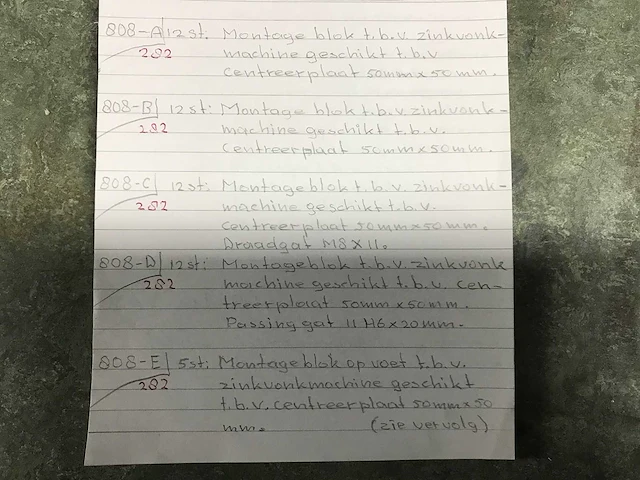 808-A 12 st: Montage blok t.b.v. zinkvonk-
282 machine geschikt t.b.v
centreerplaat 50mm x 50mm.
808-B 12 st: Montage blok t.b.v. zinkvonk-
282 machine geschikt t.b.v.
centreerplaat 50mm x 50mm.
808-C 12 st: Montage blok t.b.v. zinkvonk-
282 machine geschikt t.b.v.
centreerplaat 50mm x 50mm.
Draadgat M8 X 11.
808-D 12 st: Montageblok t.b.v. zinkvonk
282 machine geschikt t.b.v. cen-
treerplaat 50mm x 50mm.
Passing gat 11 H6 x 20mm.
808-E 5 st: Montageblok op voet t.b.v.
282 zinkvonkmachine geschikt
t.b.v. centreerplaat 50mm x 50
mm. (zie vervolg)